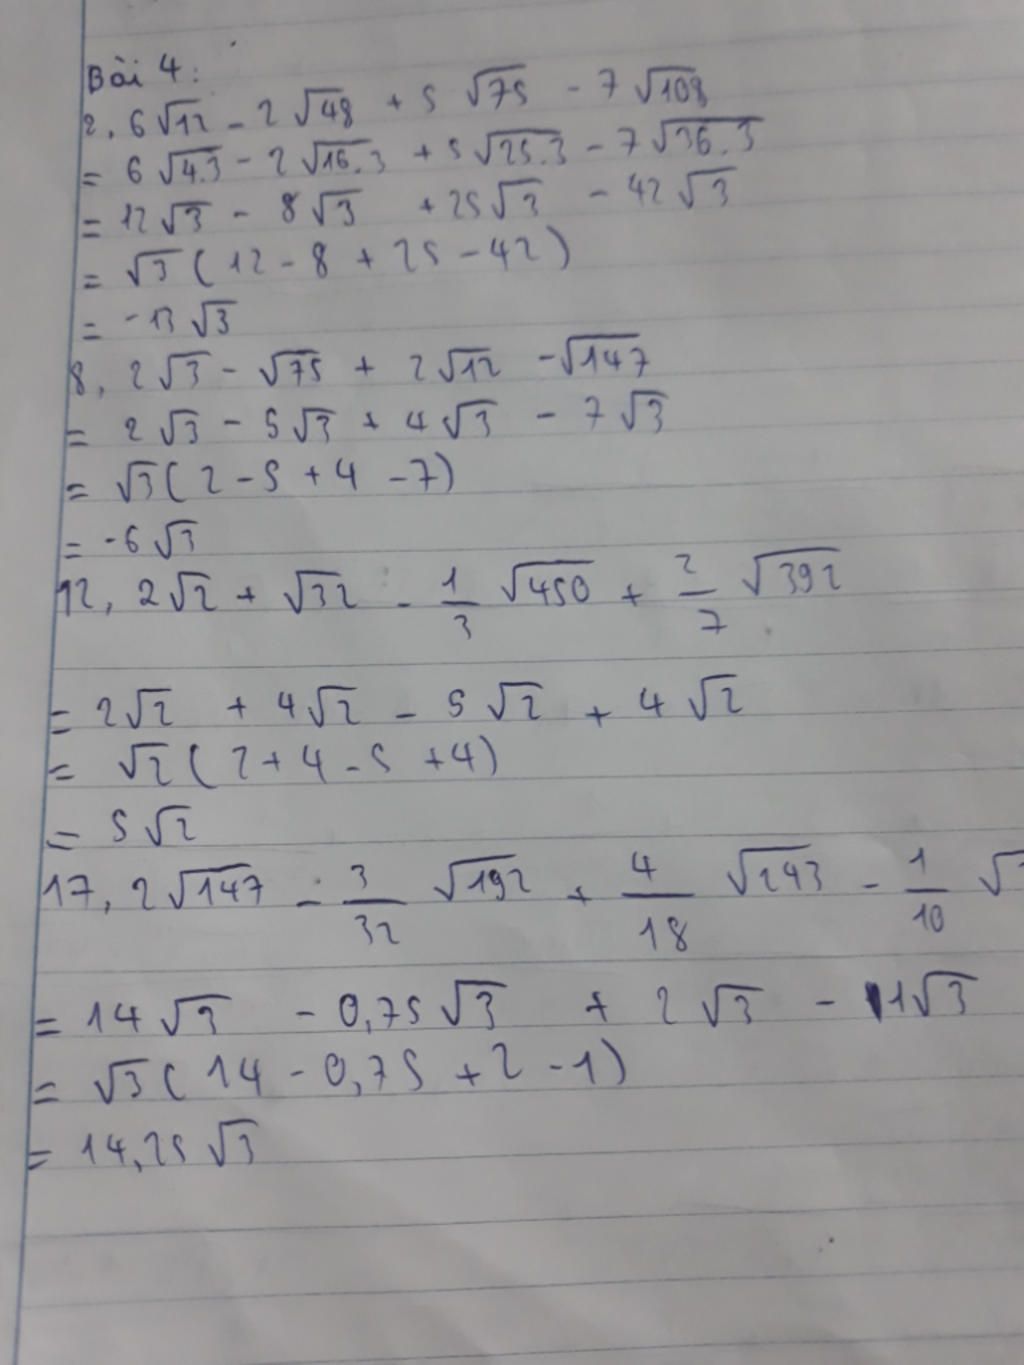 Bài 4:
2, 6√12 - 2√48 + 5√75 - 7√108
= 6√4.3 - 2√16.3 + 5√25.3 - 7√36.3
= 12√3 - 8√3 + 25√3 - 42√3
= √3 ( 12 - 8 + 25 - 42 )
= -13√3
8, 2√3 - √75 + 2√12 - √147
= 2√3 - 5√3 + 4√3 - 7√3
= √3 ( 2 - 5 + 4 - 7 )
= -6√3
12, 2√2 + √32 - 1/3 √450 + 2/7 √392
= 2√2 + 4√2 - 5√2 + 4√2
= √2 ( 2 + 4 - 5 + 4 )
= 5√2
17, 2√147 - 3/32 √192 + 4/18 √243 - 1/10 √
= 14√3 - 0,75√3 + 2√3 - 1√3
= √3 ( 14 - 0,75 + 2 - 1 )
= 14,25√3